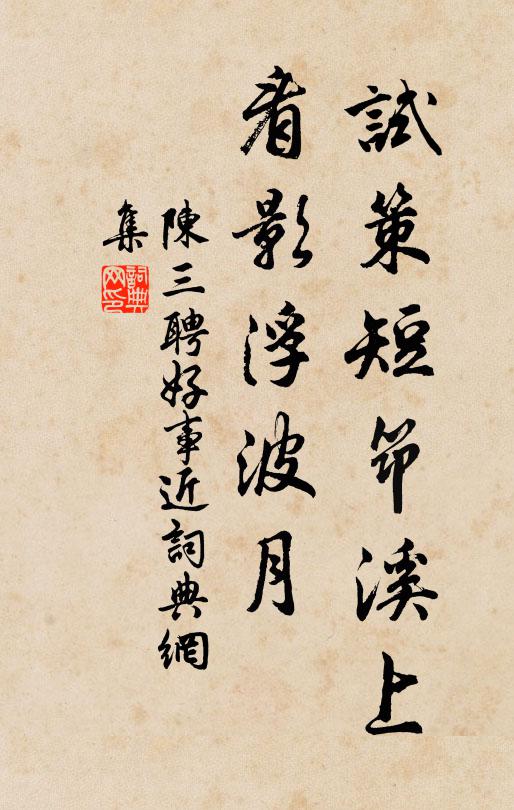 試策短筇溪上
看影浮波月
陳三聘好事近詞典網
集
詞典
网印